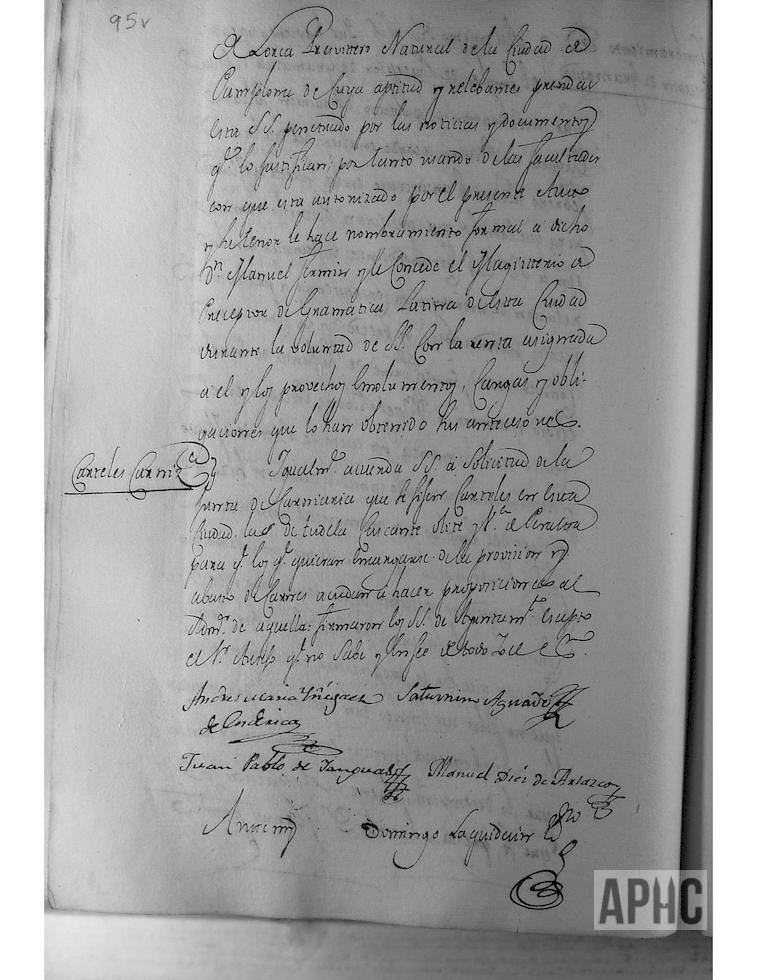 95v
A Lorca Presvittero Natural de la Ciudad de
Pamplona de Cuya aptitud y relebantes prendas
esta SS. penetrado por las noticias y documentos
q.e lo justifican; por tanto usando de las facultades
con que esta autorizado por el presente Auto
y su tenor le hace nombramiento formal a dicho
D.n Manuel Fermin y le Concede el Magisterio de
Preceptor de Gramatica Latina de esta Ciudad
durante la voluntad de SS. Con la renta asignada
a el y los provechos Emolumentos, Cargas y obli-
gaciones que lo han obtenido sus antecesores.
Carteles Carniz.a
Igualm.te acuerda SS. a Solicitud de la
Junta de Carniceria que se fijen Carteles en esta
Ciudad, las de tudela Cascante olite y V.a de Peralta
para q.e los q.e quieran encargarse de la provision y
abasto de Carnes acudan a hacer proposiciones al
de aquella: firmaron los SS. de Ayuntam.to escepto
el S.r q.e no Sabe y en fee de todo Yo el Es.no
Andres Maria Yñiguez
de
Saturnino Aguado
Juan Pablo de Yanguas
Manuel Diez de
Ante mi
Domingo Laquidain
APHC